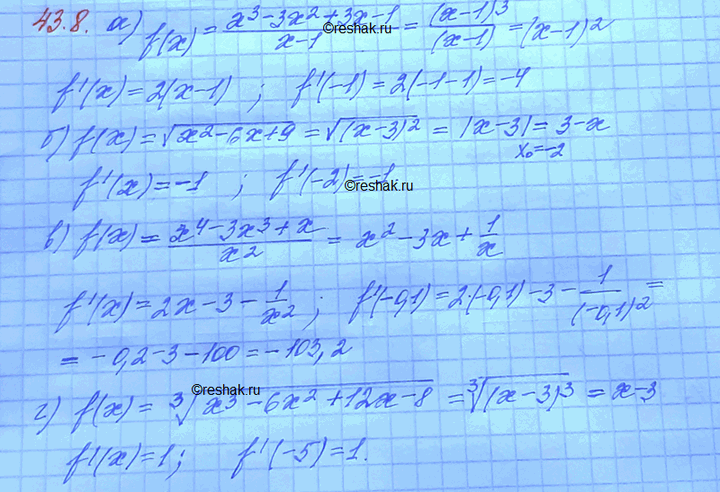 43.8. а) f(x) = (x³-3x²+3x-1)/(x-1) = (x-1)³/(x-1) = (x-1)²
©reshak.ru
f'(x) = 2(x-1) ; f'(-1) = 2(-1-1) = -4
б) f(x) = √(x²-6x+9) = √((x-3)²) = |x-3| = 3-x
x₀=-2
f'(x) = -1 ; f'(-2) = -1
©reshak.ru
в) f(x) = (x⁴-3x³+x)/x² = x²-3x+1/x
f'(x) = 2x-3-1/x² ; f'(-0,1) = 2·(-0,1)-3-1/(-0,1)² =
= -0,2-3-100 = -103,2
©reshak.ru
г) f(x) = ∛(x³-6x²+12x-8) = ∛((x-3)³) = x-3
f'(x) = 1 ; f'(-5) = 1.